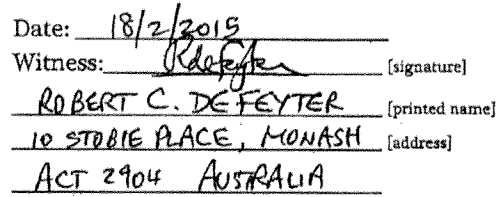 Date: 18/2/2015
Witness: RdeFeyter [signature]
ROBERT C. DE FEYTER [printed name]
10 STOBIE PLACE, MONASH [address]
ACT 2904 AUSTRALIA